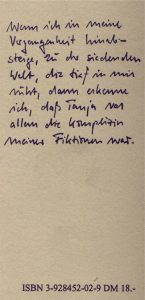 Wenn ich in meine
Vergangenheit hinab-
steige, zu der siedenden
Welt, die tief in mir
ruht, dann erkenne
ich, daß Tanja vor
allem die Komplizin
meiner Fiktionen war.
ISBN 3-928452-02-9 DM 18.-